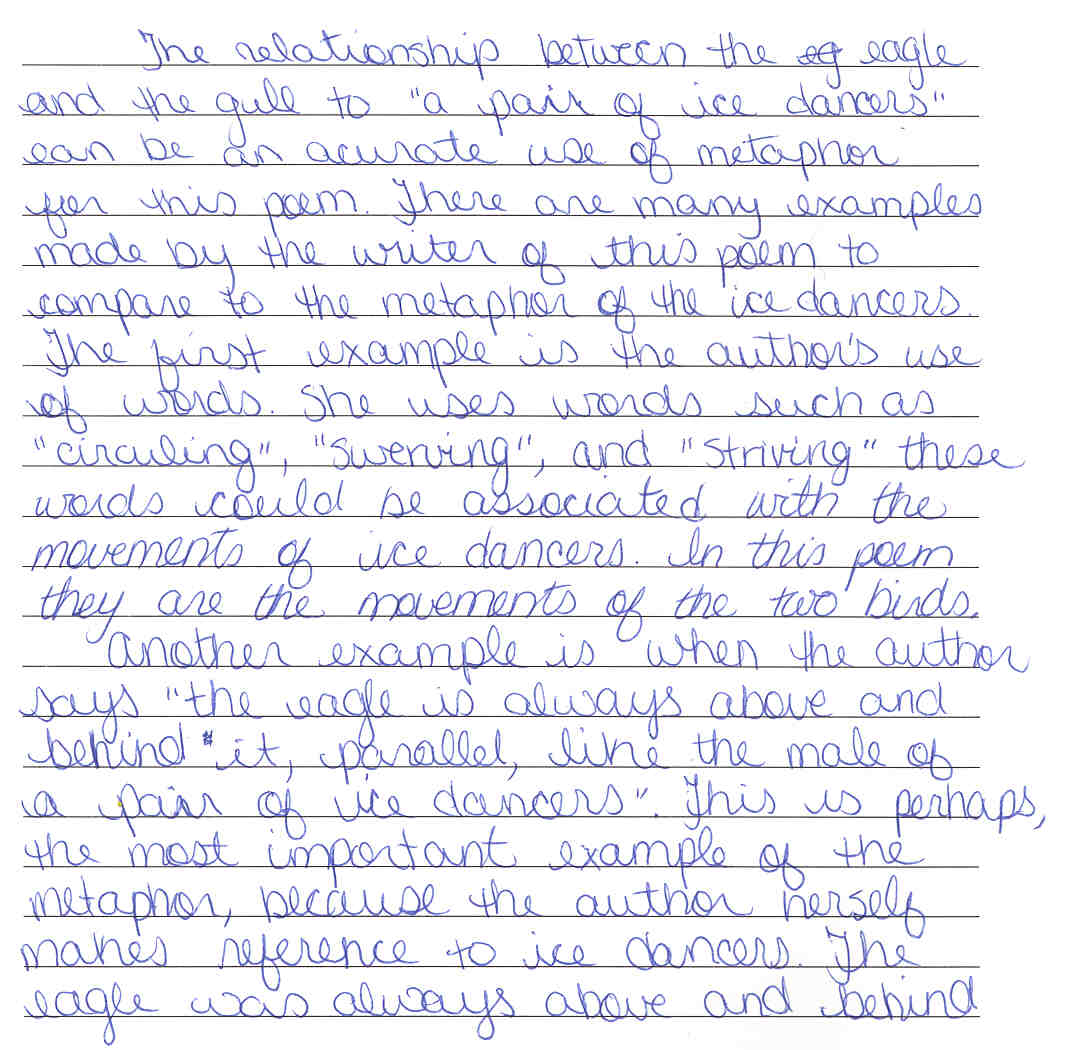 The relationship between the eg eagle
and the gull to "a pair of ice dancers"
can be an acurate use of metaphor
for this poem. There are many examples
made by the writer of this poem to
compare to the metaphor of the ice dancers.
The first example is the author's use
of words. She uses words such as
"circuling", "swerving", and "striving" these
words could be associated with the
movements of ice dancers. In this poem
they are the movements of the two birds.
Another example is when the author
says "the eagle is always above and
behind it, parallel, like the male of
a pair of ice dancers". This is perhaps,
the most important example of the
metaphor, because the author herself
makes reference to ice dancers. The
eagle was always above and behind